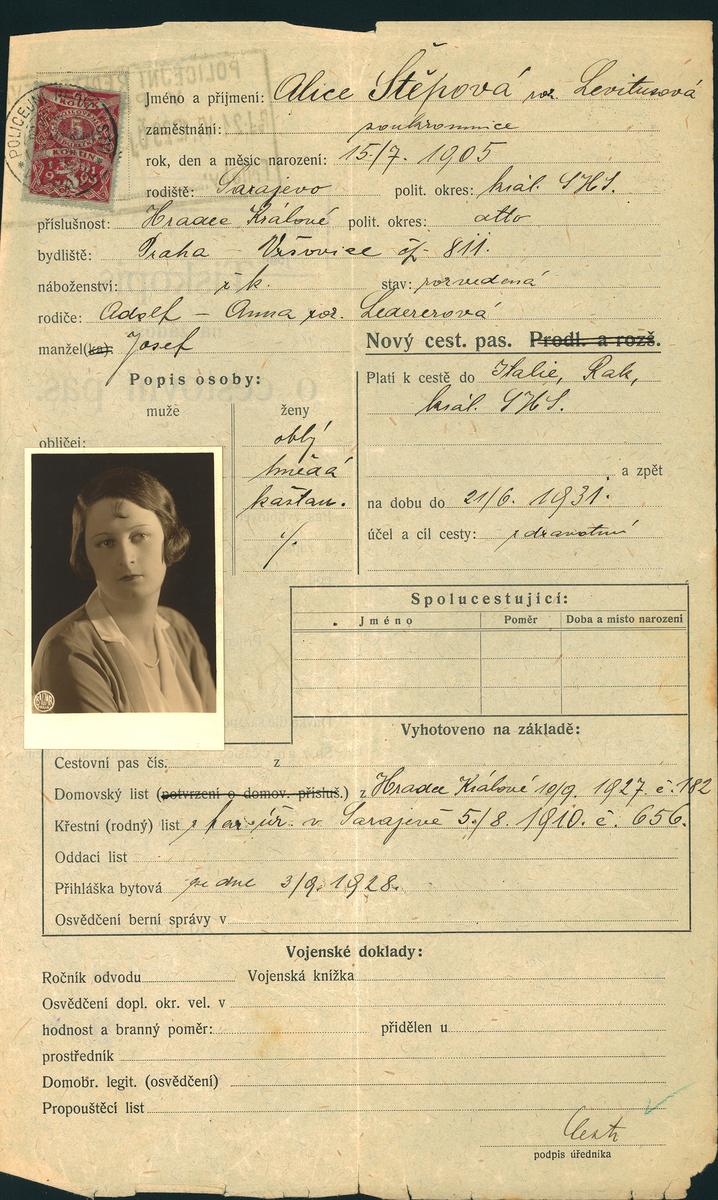 POLICEJNÍ
KORUN
5
KORUN
Jméno a příjmení: Alice Štěpová roz. Levitusová
zaměstnání: soukromnice
rok, den a měsíc narození: 15./7. 1905
rodiště: Sarajevo polit. okres: král. SHS.
příslušnost: Hradec Králové polit. okres: dtto
bydliště: Praha – Vršovice čp. 811.
náboženství: ř. k. stav: rozvedená
rodiče: Adolf – Anna roz. Ledererová
manžel(ka): Josef
Nový cest. pas. Prodl. a rozš.
Popis osoby:
muže ženy
obličej: oblý
hnědá
kaštan.
·/.
Platí k cestě do Italie, Rak,
král. SHS.
a zpět
na dobu do 21/6. 1931.
účel a cíl cesty: zdravotní
Spolucestující:
Jméno Poměr Doba a místo narození
Vyhotoveno na základě:
Cestovní pas čís. z
Domovský list (potvrzení o domov. přísluš.) z Hradce Králové 10/9. 1927. č. 182
Křestní (rodný) list z far. úř. v Sarajevě 5./8. 1910. č. 656.
Oddací list
Přihláška bytová ze dne 3/9. 1928.
Osvědčení berní správy v
Vojenské doklady:
Ročník odvodu Vojenská knížka
Osvědčení dopl. okr. vel. v
hodnost a branný poměr: přidělen u
prostředník
Domobr. legit. (osvědčení)
Propouštěcí list
podpis úředníka